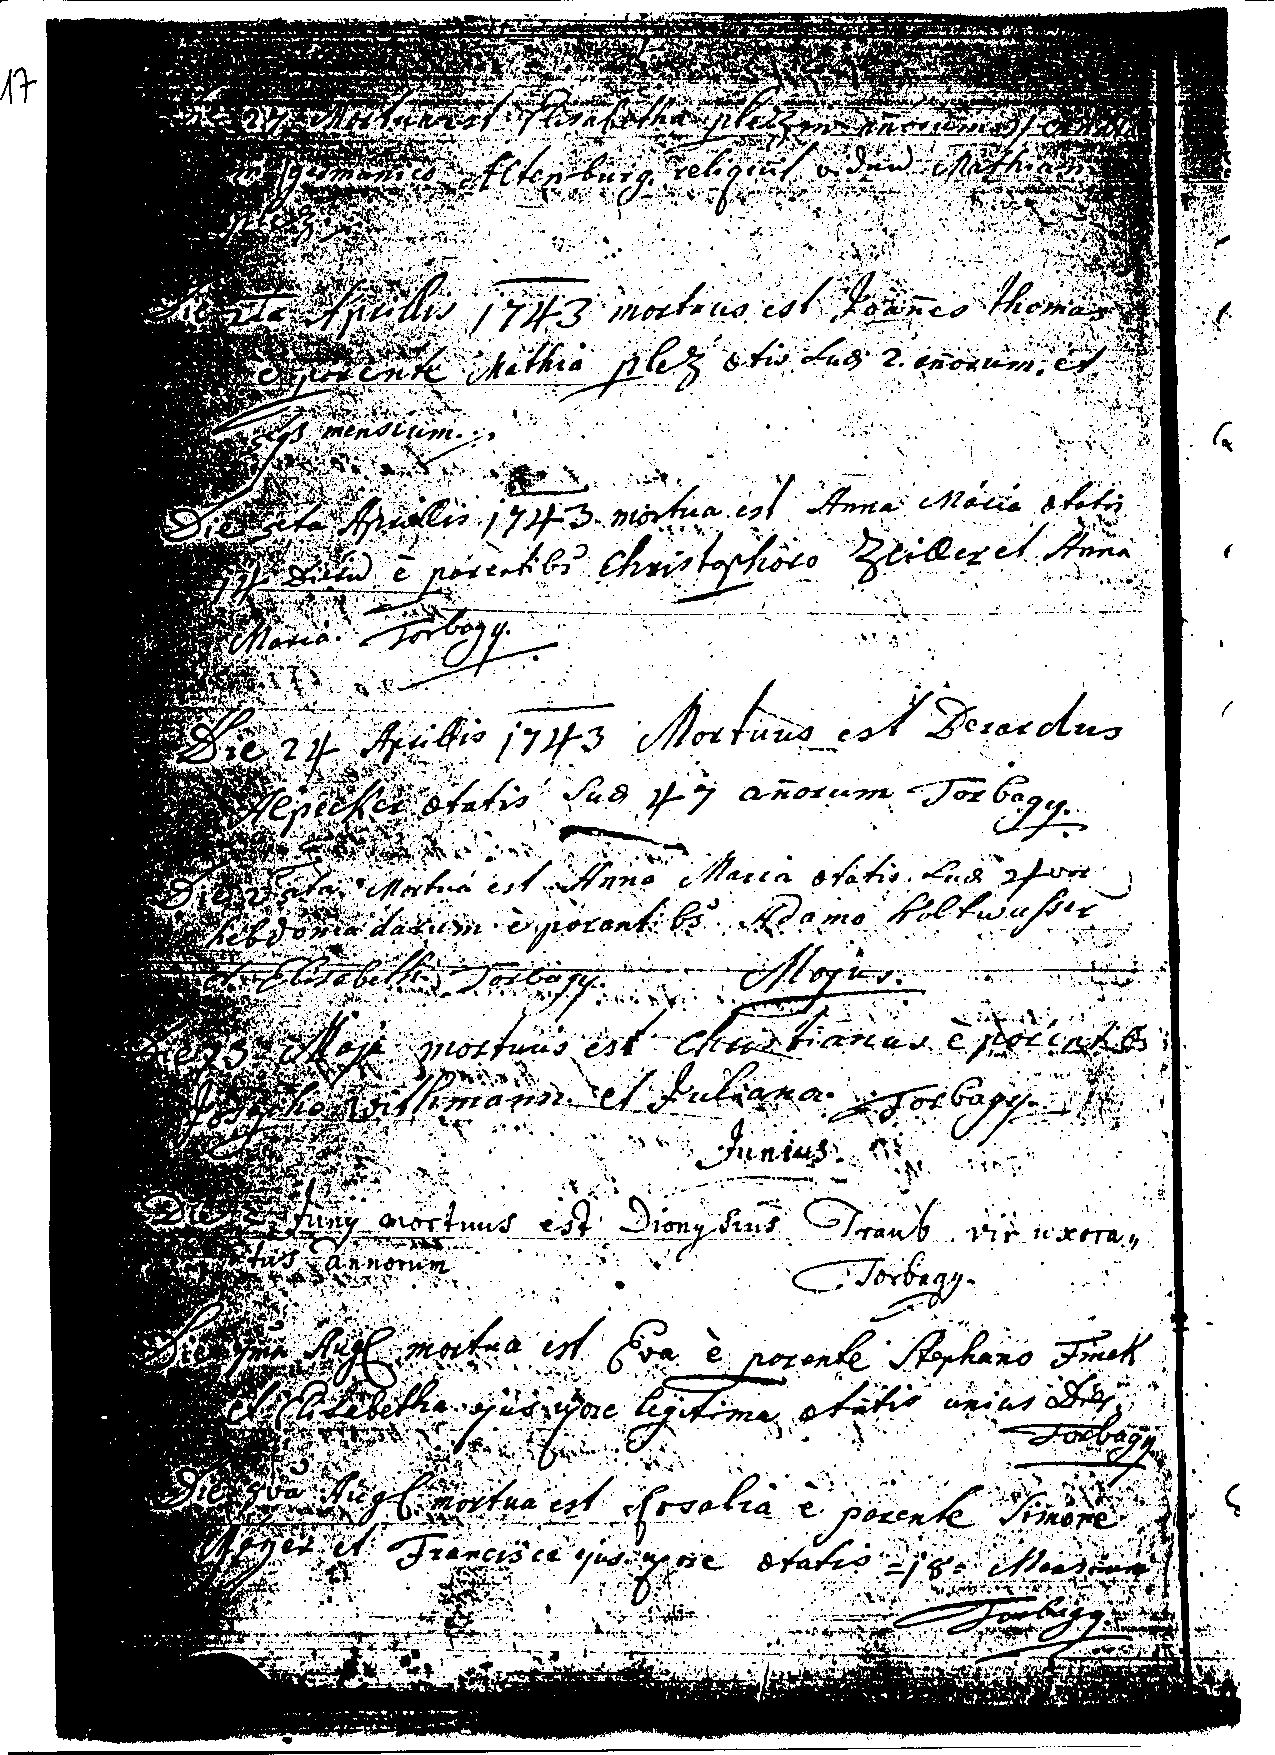 17
27 Mortua est Elisabetha plez annorum
in germanico Altenburg. reliquit viduū Mathiam
plez.
Die Aprillis 1743 mortuus est Joañes Thomas
è parente Mathia plez ætis suæ 2. añorum, et
mensium.
Die Aprillis 1743 mortua est Anna Maria ætatis
14 dierū è parentibs Christophoro Zeiller et Anna
Maria. Torbagy.
Die 24 Aprillis 1743 Mortuus est Derardus
ætatis suæ 47 añorum Torbagy.
Die Mortua est Anna Maria ætatis suæ 2
hebdomadarum è parentibs Adamo Koltwasser
et Elisabeth. Torbagy. Majus.
Die 23 Maji mortuus est Christianus è parentibs
Josepho et Juliana. Torbagy.
Junius.
Die 2 Junÿ mortuus est Dionysius Traub vir uxora„
tus annorum
Torbagy.
Die Aug mortua est Eva è parente Stephano
et Elisabetha ejus uxore legitima ætatis unius Diei,
Torbagy
Die Aug mortua est Rosalia è parente Simone
Mayer et Francisca ejus uxore ætatis =18= Mensium
Torbagy.